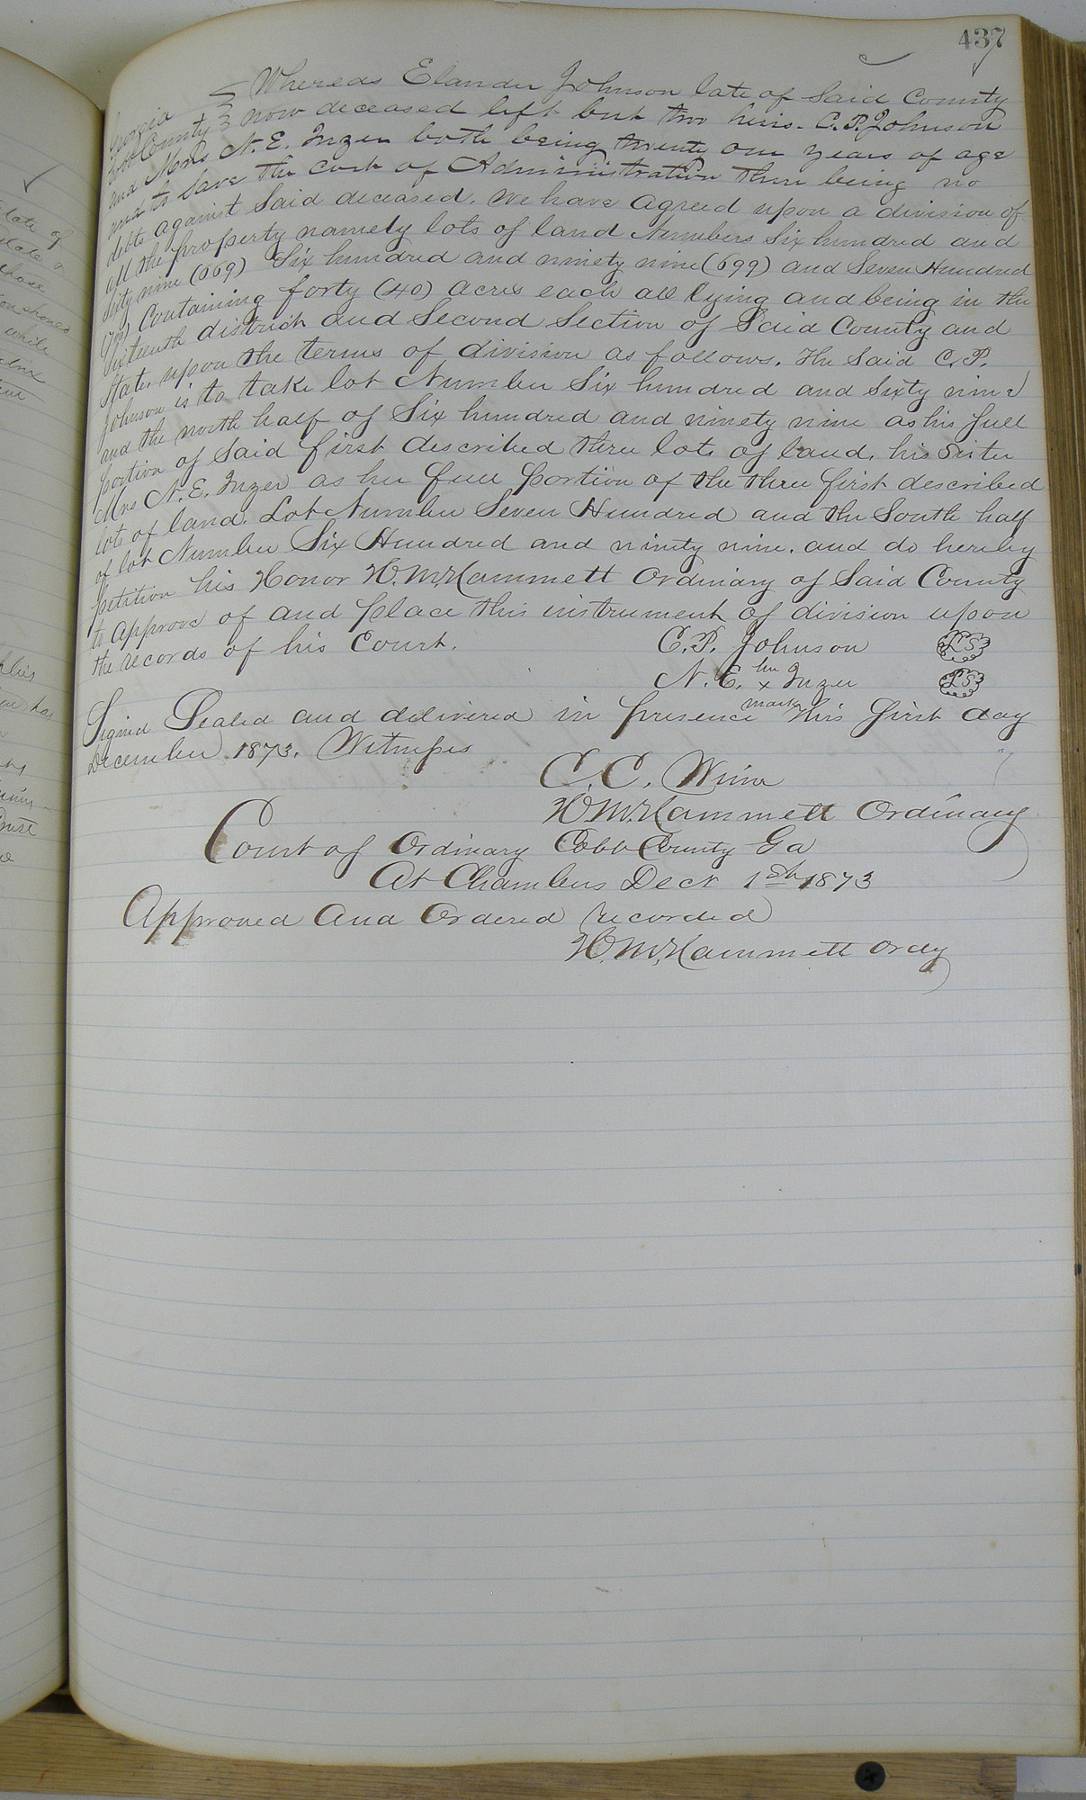 437
Georgia } Whereas Elander Johnson late of Said County
Cobb County } now deceased left but two heirs. C. P. Johnson
and Mrs N. E. Inzer both being twenty one years of age
and to save the cost of Administration there being no
debts against Said deceased. We have agreed upon a division of
all the property namely lots of land Numbers Six hundred and
Sixty nine (669) Six hundred and ninety nine (699) and Seven Hundred
(700) Containing forty (40) acres each all lying and being in the
Sixteenth district and Second Section of Said County and
State. upon the terms of division as follows. The Said C. P.
Johnson is to take lot Number Six hundred and Sixty nine
and the north half of Six hundred and ninety nine as his full
portion of Said first described three lots of land. his Sister
Mrs N. E. Inzer as her full portion of the three first described
lots of land. Lot Number Seven Hundred and the South half
of lot Number Six Hundred and ninety nine. and do hereby
petition his Honor H. M. Hammett Ordinary of Said County
to approve of and place this instrument of division upon
the records of his Court.
C. P. Johnson LS
N. E. her x mark Inzer LS
Signed Sealed and delivered in presence this first day
December 1873. Witness
C. C. Winn
H M. Hammett Ordinary
Court of Ordinary Cobb County Ga
At Chambers Decr 1st 1873
Approved and Ordered recorded
H. M. Hammett Ordy